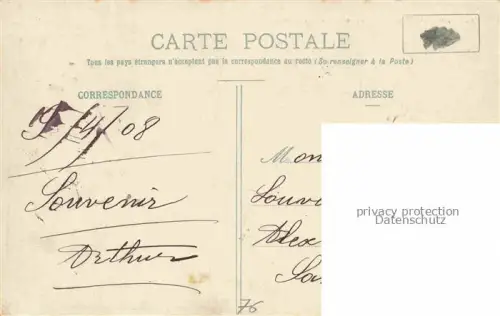 CARTE POSTALE
Tous les pays étrangers n'acceptent pas la correspondance au recto (Se renseigner à la Poste)
CORRESPONDANCE
ADRESSE
/4/08
Souvenir
Arthur
Mon
Louv
Alex
privacy protection
Datenschutz
76